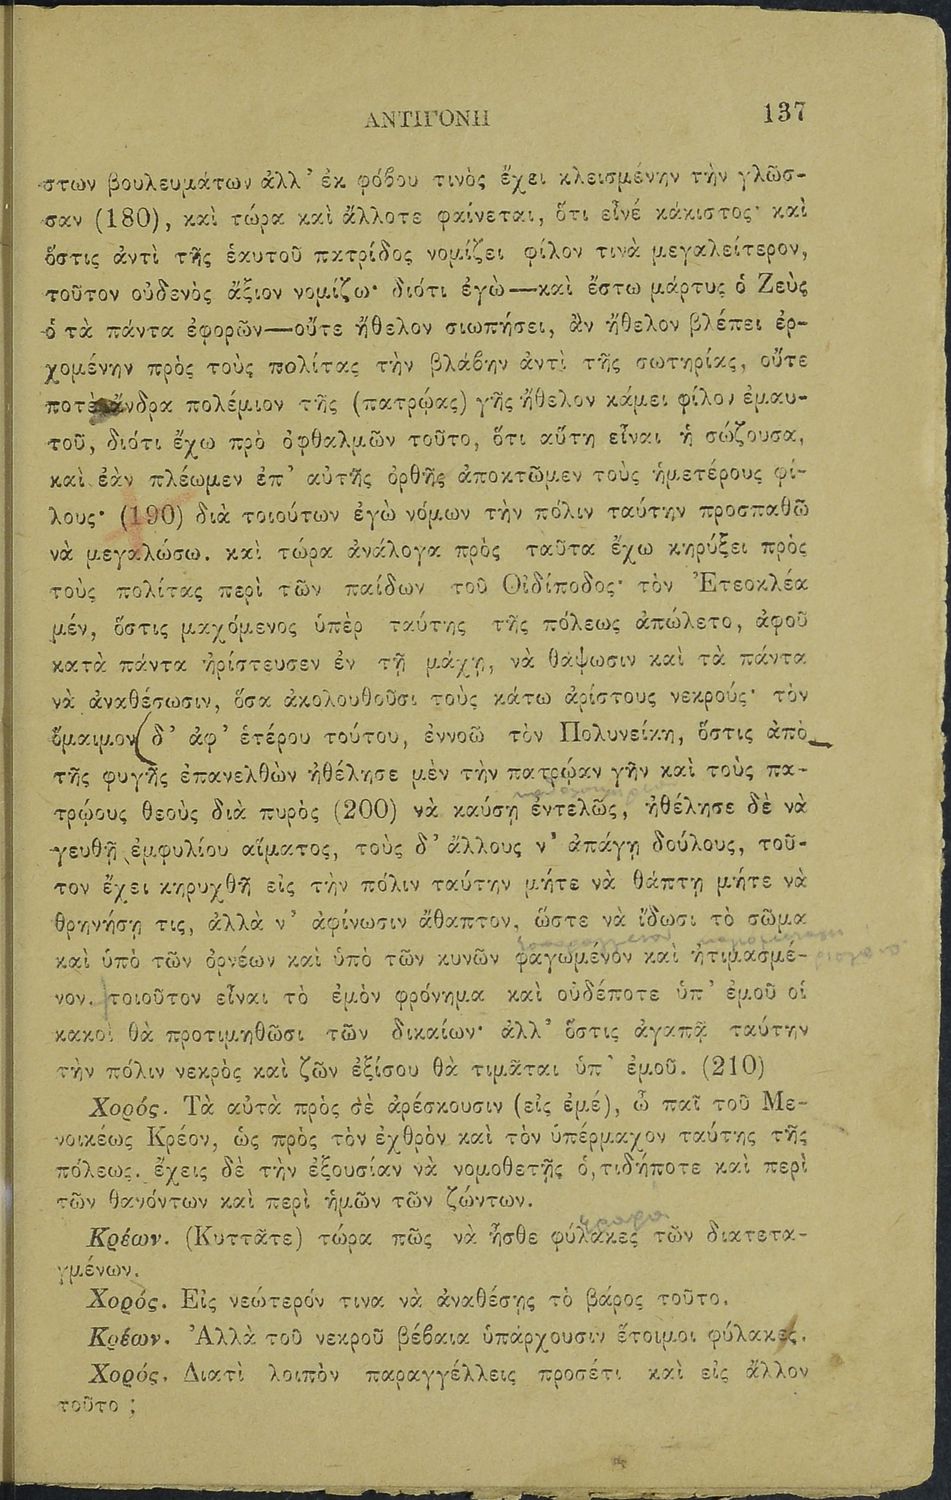 ΑΝΤΙΓΟΝΗ 137
στων βουλευμάτων ἀλλ’ ἐκ φόβου τινὸς ἔχει κλεισμένην τὴν γλῶσ-
σαν (180), καὶ τώρα καὶ ἄλλοτε φαίνεται, ὅτι εἶνέ κάκιστος· καὶ
ὅστις ἀντὶ τῆς ἑαυτοῦ πατρίδος νομίζει φίλον τινὰ μεγαλείτερον,
τοῦτον οὐδενὸς ἄξιον νομίζω· διότι ἐγὼ—καὶ ἔστω μάρτυς ὁ Ζεὺς
ὁ τὰ πάντα ἐφορῶν—οὔτε ἤθελον σιωπήσει, ἂν ἤθελον βλέπει ἐρ-
χομένην πρὸς τοὺς πολίτας τὴν βλάβην ἀντὶ τῆς σωτηρίας, οὔτε
ποτὲ ἄνδρα πολέμιον τῆς (πατρῴας) γῆς ἤθελον κάμει φίλον ἐμαυ-
τοῦ, διότι ἔχω πρὸ ὀφθαλμῶν τοῦτο, ὅτι αὕτη εἶναι ἡ σώζουσα,
καὶ ἐὰν πλέωμεν ἐπ’ αὐτῆς ὀρθῆς ἀποκτῶμεν τοὺς ἡμετέρους φί-
λους· (190) διὰ τοιούτων ἐγὼ νόμων τὴν πόλιν ταύτην προσπαθῶ
νὰ μεγαλώσω. καὶ τώρα ἀνάλογα πρὸς ταῦτα ἔχω κηρύξει πρὸς
τοὺς πολίτας περὶ τῶν παίδων τοῦ Οἰδίποδος· τὸν Ἐτεοκλέα
μέν, ὅστις μαχόμενος ὑπὲρ ταύτης τῆς πόλεως ἀπώλετο, ἀφοῦ
κατὰ πάντα ἠρίστευσεν ἐν τῇ μάχῃ, νὰ θάψωσιν καὶ τὰ πάντα
νὰ ἀναθέσωσιν, ὅσα ἀκολουθοῦσι τοὺς κάτω ἀρίστους νεκρούς· τὸν
ὅμαιμον δ’ ἀφ’ ἑτέρου τούτου, ἐννοῶ τὸν Πολυνείκη, ὅστις ἀπὸ
τῆς φυγῆς ἐπανελθὼν ἠθέλησε μὲν τὴν πατρῴαν γῆν καὶ τοὺς πα-
τρῴους θεοὺς διὰ πυρὸς (200) νὰ καύσῃ ἐντελῶς, ἠθέλησε δὲ νὰ
γευθῇ ἐμφυλίου αἵματος, τοὺς δ’ ἄλλους ν’ ἀπάγῃ δούλους, τοῦ-
τον ἔχει κηρυχθῆ εἰς τὴν πόλιν ταύτην μήτε νὰ θάπτῃ μήτε νὰ
θρηνήσῃ τις, ἀλλὰ ν’ ἀφίνωσιν ἄθαπτον, ὥστε νὰ ἴδωσι τὸ σῶμα
καὶ ὑπὸ τῶν ὀρνέων καὶ ὑπὸ τῶν κυνῶν φαγωμένον καὶ ἠτιμασμέ-
νον. τοιοῦτον εἶναι τὸ ἐμὸν φρόνημα καὶ οὐδέποτε ὑπ’ ἐμοῦ οἱ
κακοὶ θὰ προτιμηθῶσι τῶν δικαίων· ἀλλ’ ὅστις ἀγαπᾷ ταύτην
τὴν πόλιν νεκρὸς καὶ ζῶν ἐξίσου θὰ τιμᾶται ὑπ’ ἐμοῦ. (210)
Χορός. Τὰ αὐτὰ πρὸς σὲ ἀρέσκουσιν (εἰς ἐμέ), ὦ παῖ τοῦ Με-
νοικέως Κρέον, ὡς πρὸς τὸν ἐχθρὸν καὶ τὸν ὑπέρμαχον ταύτης τῆς
πόλεως. ἔχεις δὲ τὴν ἐξουσίαν νὰ νομοθετῇς ὅ,τιδήποτε καὶ περὶ
τῶν θανόντων καὶ περὶ ἡμῶν τῶν ζώντων.
Κρέων. (Κυττᾶτε) τώρα πῶς νὰ ἦσθε φύλακες τῶν διατετα-
γμένων.
Χορός. Εἰς νεώτερόν τινα νὰ ἀναθέσῃς τὸ βάρος τοῦτο.
Κρέων. Ἀλλὰ τοῦ νεκροῦ βέβαια ὑπάρχουσιν ἕτοιμοι φύλακες.
Χορός. Διατὶ λοιπὸν παραγγέλλεις προσέτι καὶ εἰς ἄλλον
τοῦτο ;